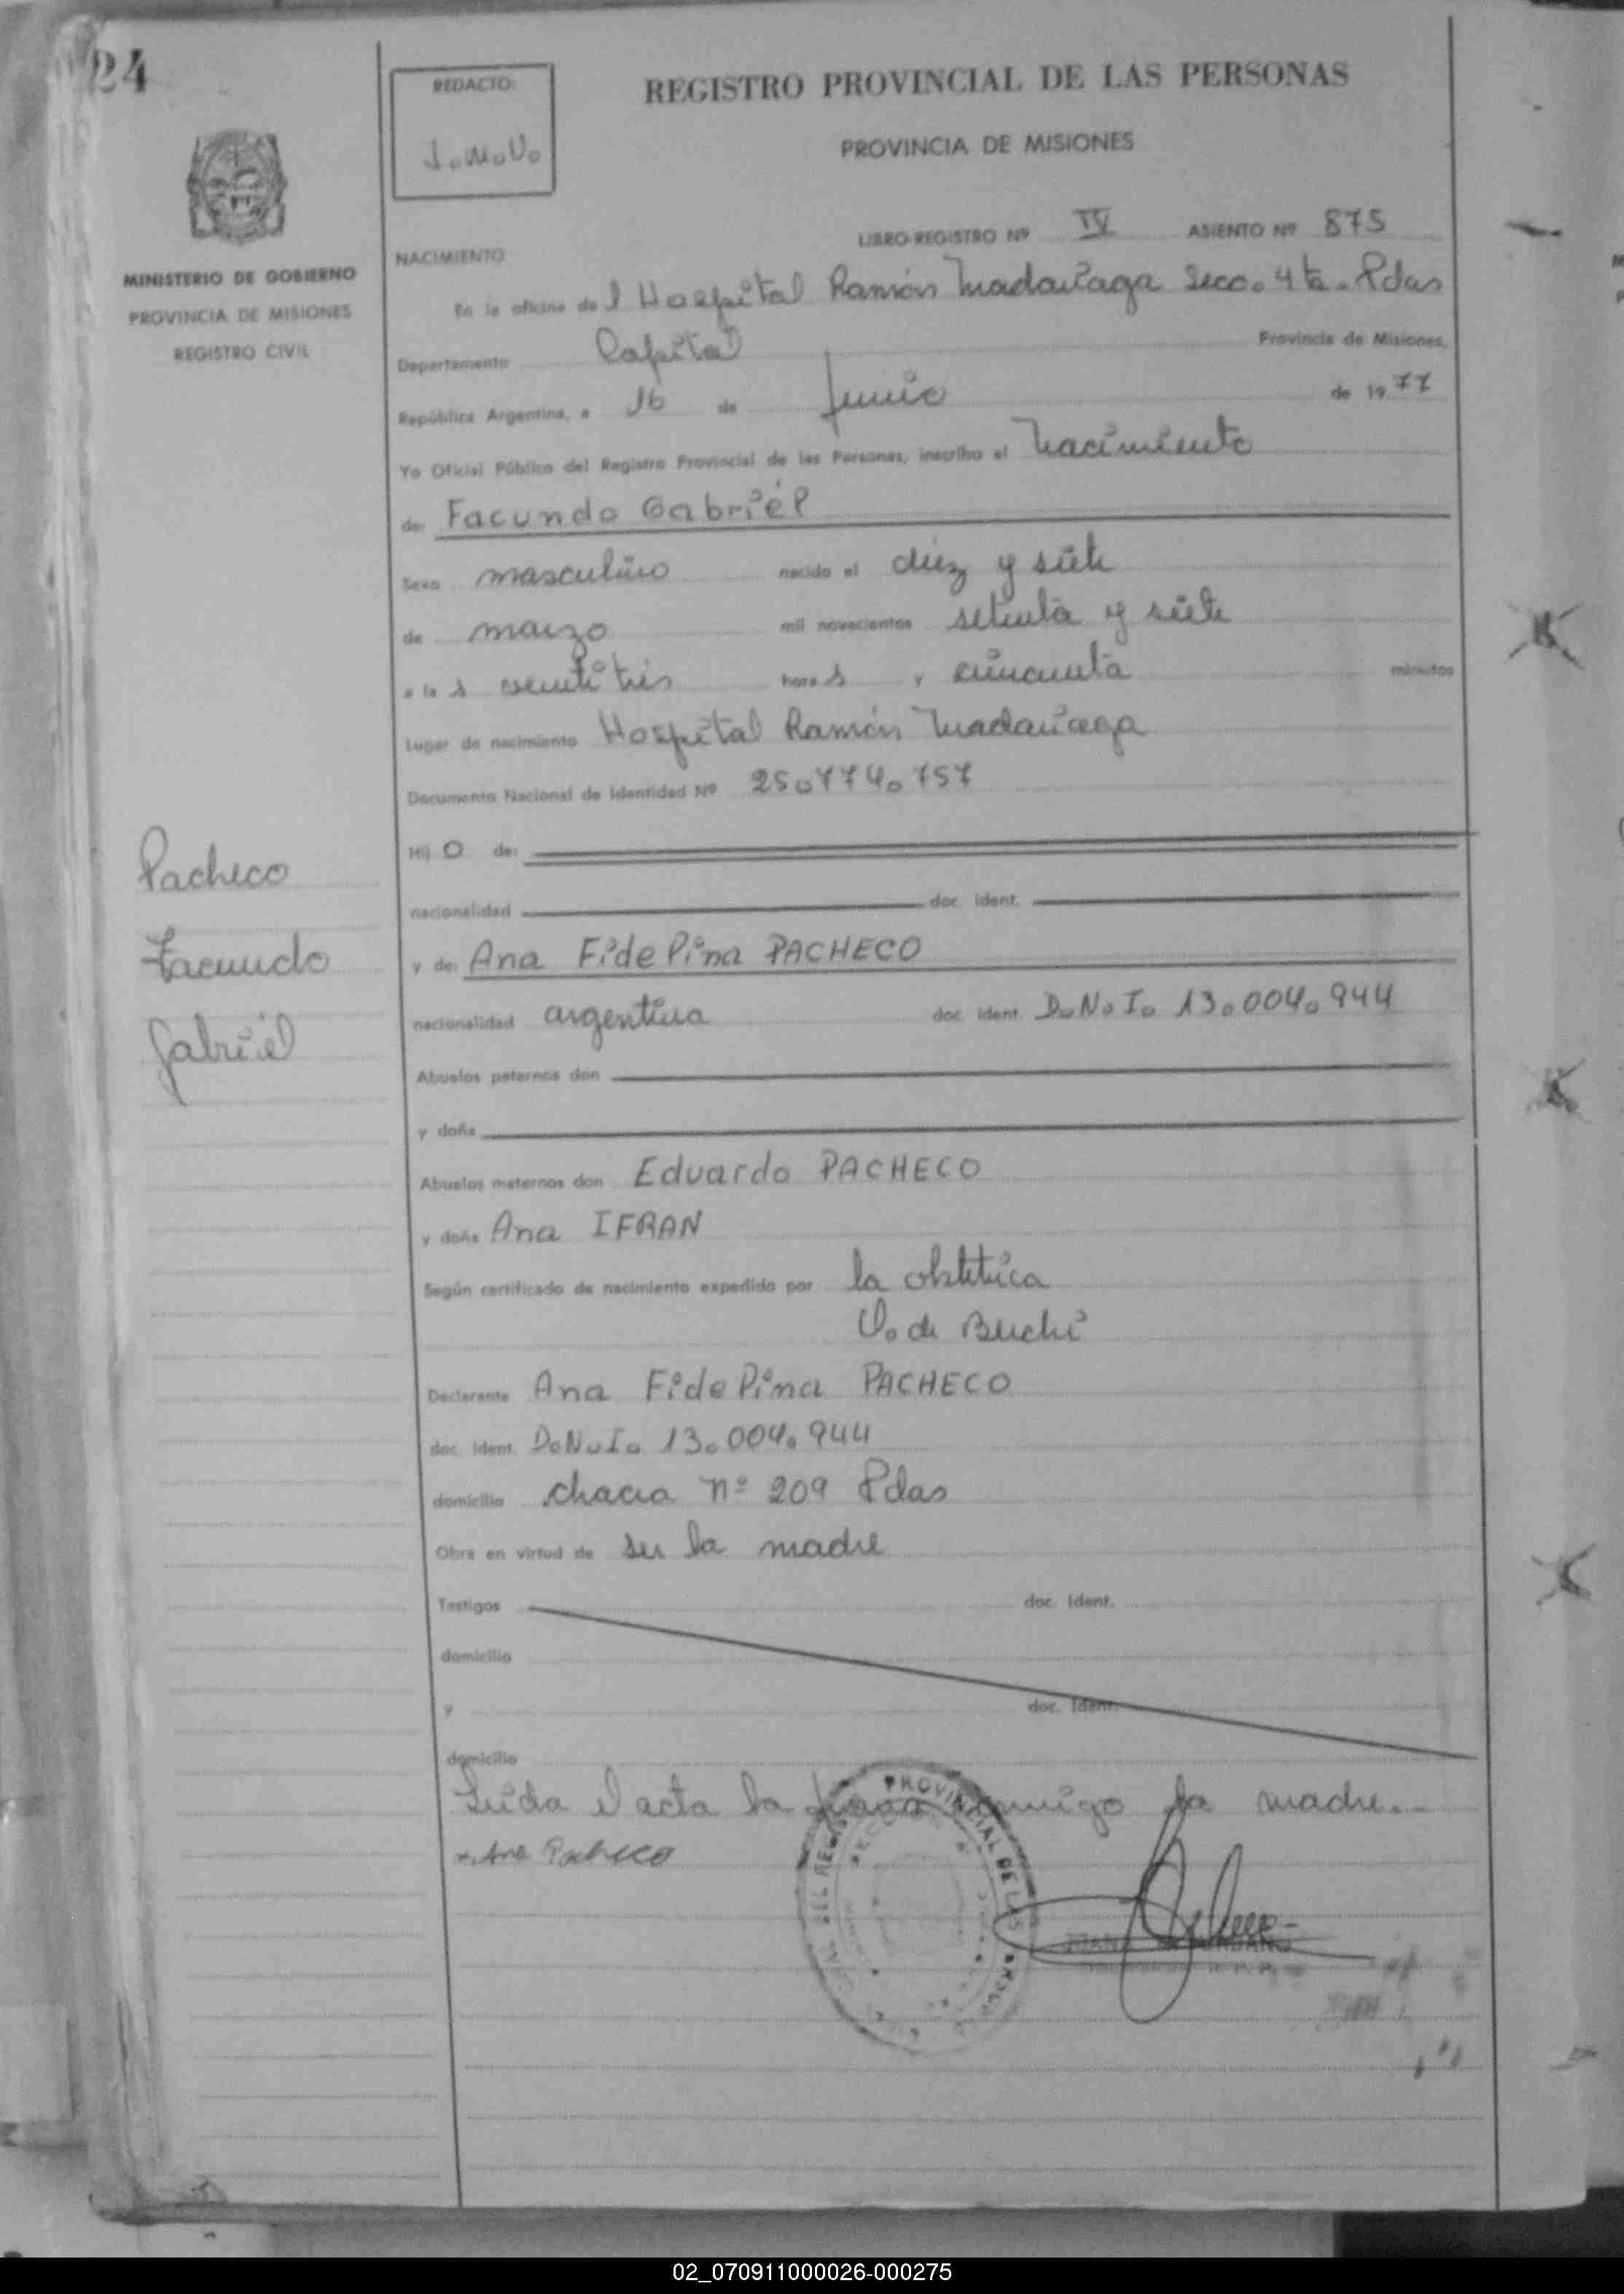 24
REDACTO:
J.M.V.
REGISTRO PROVINCIAL DE LAS PERSONAS
PROVINCIA DE MISIONES
MINISTERIO DE GOBIERNO
PROVINCIA DE MISIONES
REGISTRO CIVIL
LIBRO-REGISTRO Nº IV ASIENTO Nº 875
NACIMIENTO
En la oficina del Hospital Ramón Madariaga Secc. 4ta. Pdas
Departamento Capital Provincia de Misiones,
República Argentina, a 16 de Junio de 1977
Yo Oficial Público del Registro Provincial de las Personas, inscribo el Nacimiento
de: Facundo Gabriél
Sexo masculino nacido el diez y siete
de marzo mil novecientos setenta y siete
a las veinti trés horas y cincuenta minutos
Lugar de nacimiento Hospital Ramón Madariaga
Documento Nacional de Identidad Nº 25.774.757
Hijo de:
nacionalidad doc. ident.
y de: Ana Fidelina PACHECO
nacionalidad argentina doc. ident. D.N.I. 13.004.944
Pacheco
Facundo
Gabriél
Abuelos paternos don
y doña
Abuelos maternos don Eduardo PACHECO
y doña Ana IFRAN
Según certificado de nacimiento expedido por la obstétrica
V. de Buchi
Declarante Ana Fidelina PACHECO
doc. ident. D.N.I. 13.004.944
domicilio chacra nº 209 Pdas
Obra en virtud de ser la madre
Testigos doc. ident.
domicilio
y doc. ident.
domicilio
Leida el acta la firma conmigo la madre.-
x. Ana Pacheco
PROVINCIAL DE LAS
02_070911000026-000275